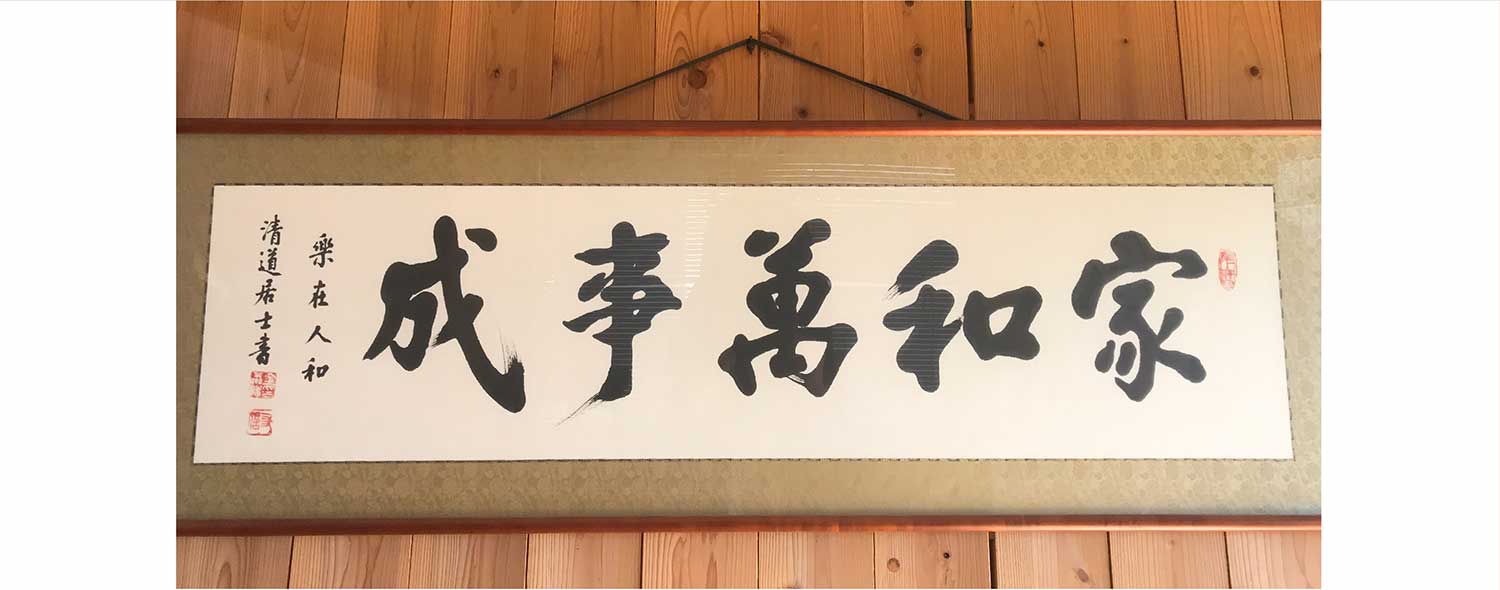 家和萬事成
楽在人和
清道居士書